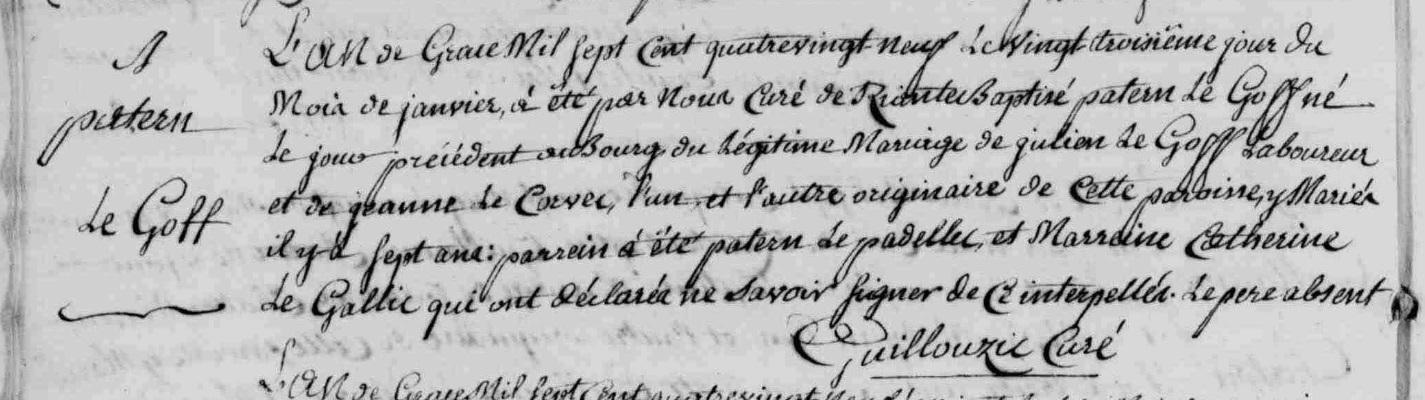 patern
Le Goff
L'an de Grace Mil sept Cent quatrevingt neuf Le vingt troisiême jour du
Mois de janvier, à été par Nous Curé de Riantec Baptisé patern Le Goff né
Le jour précédent au Bourg du Légitime Mariage de julien Le Goff Laboureur
et de jeanne Le Corvec, l'un et l'autre originaire de Cette paroisse, y Mariés
il y à sept ans: parrein à été patern Le padellec, et Marraine Catherine
Le Gallic qui ont déclarés ne savoir signer de Ce interpellés. Le pere absent
Guillouzic Curé
L'an de Grace Mil sept Cent quatrevingt